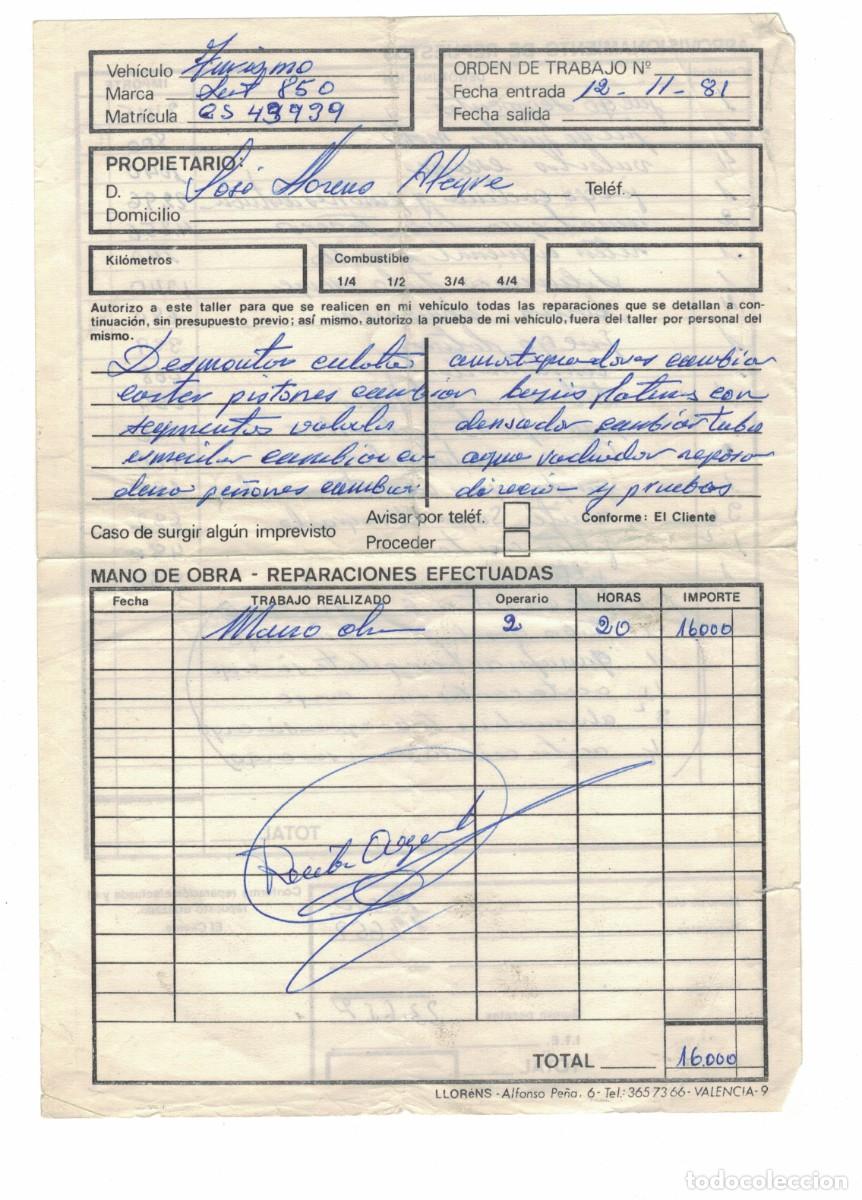 Vehículo Turismo
Marca Seat 850
Matrícula CS 43939
ORDEN DE TRABAJO Nº
Fecha entrada 12-11-81
Fecha salida
PROPIETARIO:
D. José Moreno Teléf.
Domicilio
Kilómetros
Combustible
1/4 1/2 3/4 4/4
Autorizo a este taller para que se realicen en mi vehículo todas las reparaciones que se detallan a con-
tinuación, sin presupuesto previo; así mismo, autorizo la prueba de mi vehículo, fuera del taller por personal del
mismo.
Desmontar culata
carter pistones cambiar
segmentos valvula
esmerilar cambiar ca
dena peñones cambiar
amortiguadores cambiar
bujias platinos con
densador cambiar tubo
agua radiador repasar
direccion y pruebas
Caso de surgir algún imprevisto
Avisar por teléf.
Proceder
Conforme: El Cliente
MANO DE OBRA - REPARACIONES EFECTUADAS
Fecha TRABAJO REALIZADO Operario HORAS IMPORTE
Mano obra 2 20 16000
TOTAL 16.000
LLORéNS - Alfonso Peña, 6 - Tel.: 365 73 66 - VALENCIA - 9
todocoleccion